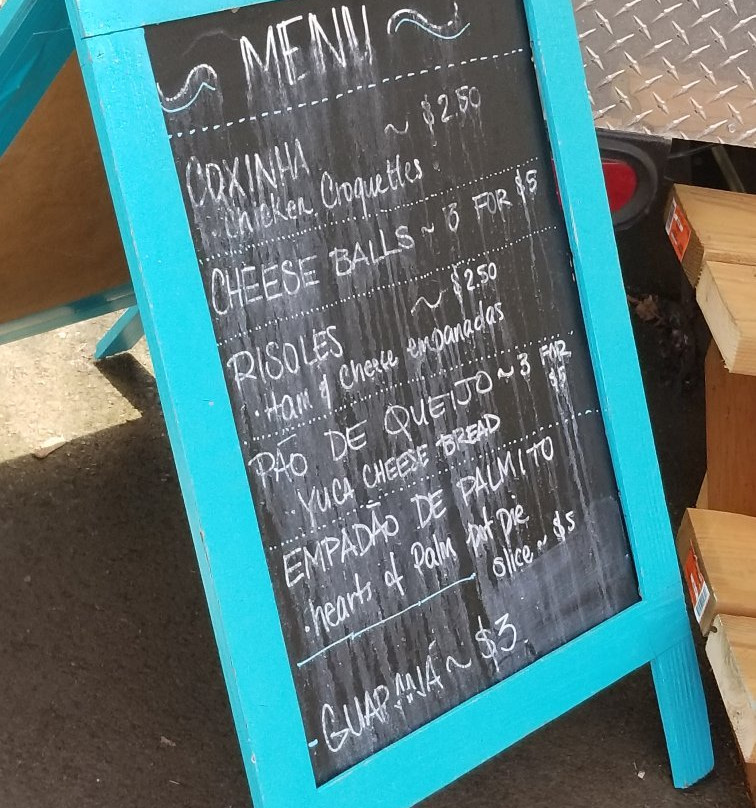 MENU
COXINHA ~ $2.50
· Chicken Croquettes
CHEESE BALLS ~ 3 FOR $5
RISOLES ~ $2.50
· Ham & Cheese empanadas
PÃO DE QUEIJO ~ 3 FOR $5
· YUCA CHEESE BREAD
EMPADÃO DE PALMITO
· hearts of Palm Pot Pie
slice ~ $5
- GUARANÁ ~ $3